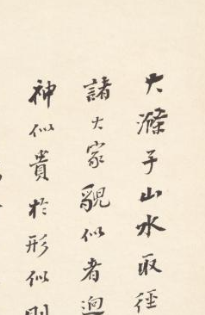 大滌子山水取徑
諸大家貌似者迥
神似貴於形似則